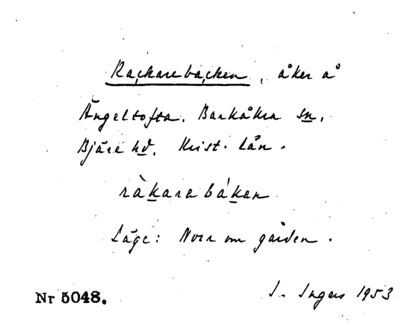 Rackarebacken, åker å
Ängeltofta. Barkåkra sn.
Bjäre hd. Krist. Län.
ràkarabákan
Läge: Norr om gården.
Nr 5048. I. Ingers 1953